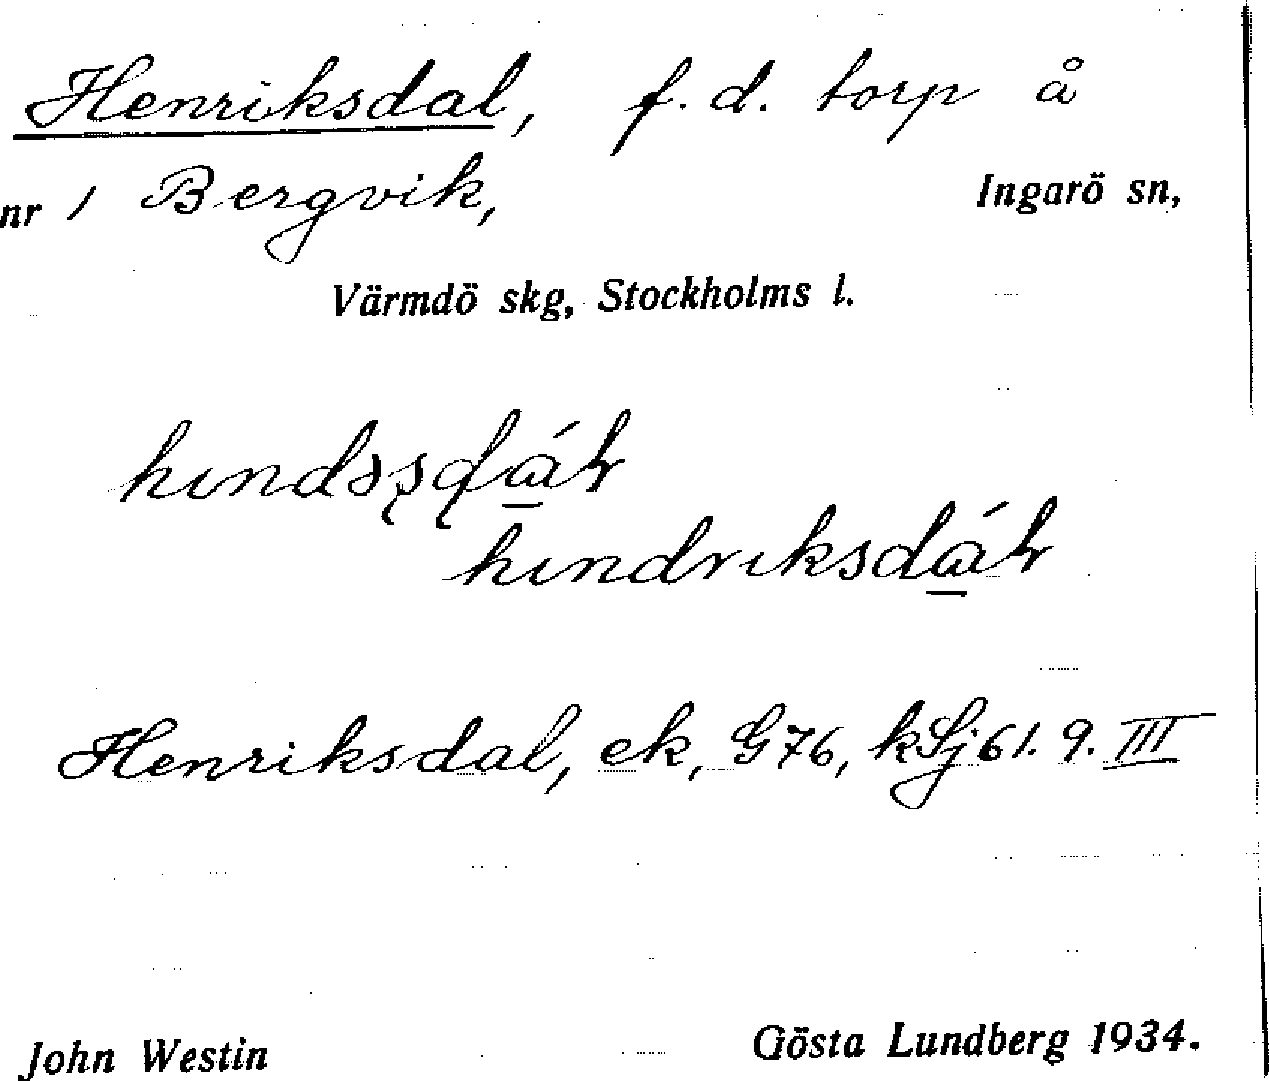 Henriksdal, f. d. torp å
nr 1 Bergvik, Ingarö sn,
Värmdö skg, Stockholms l.
hındriksdáɫr
Henriksdal, ek, G76, kSj 61. 9. III
John Westin Gösta Lundberg 1934.